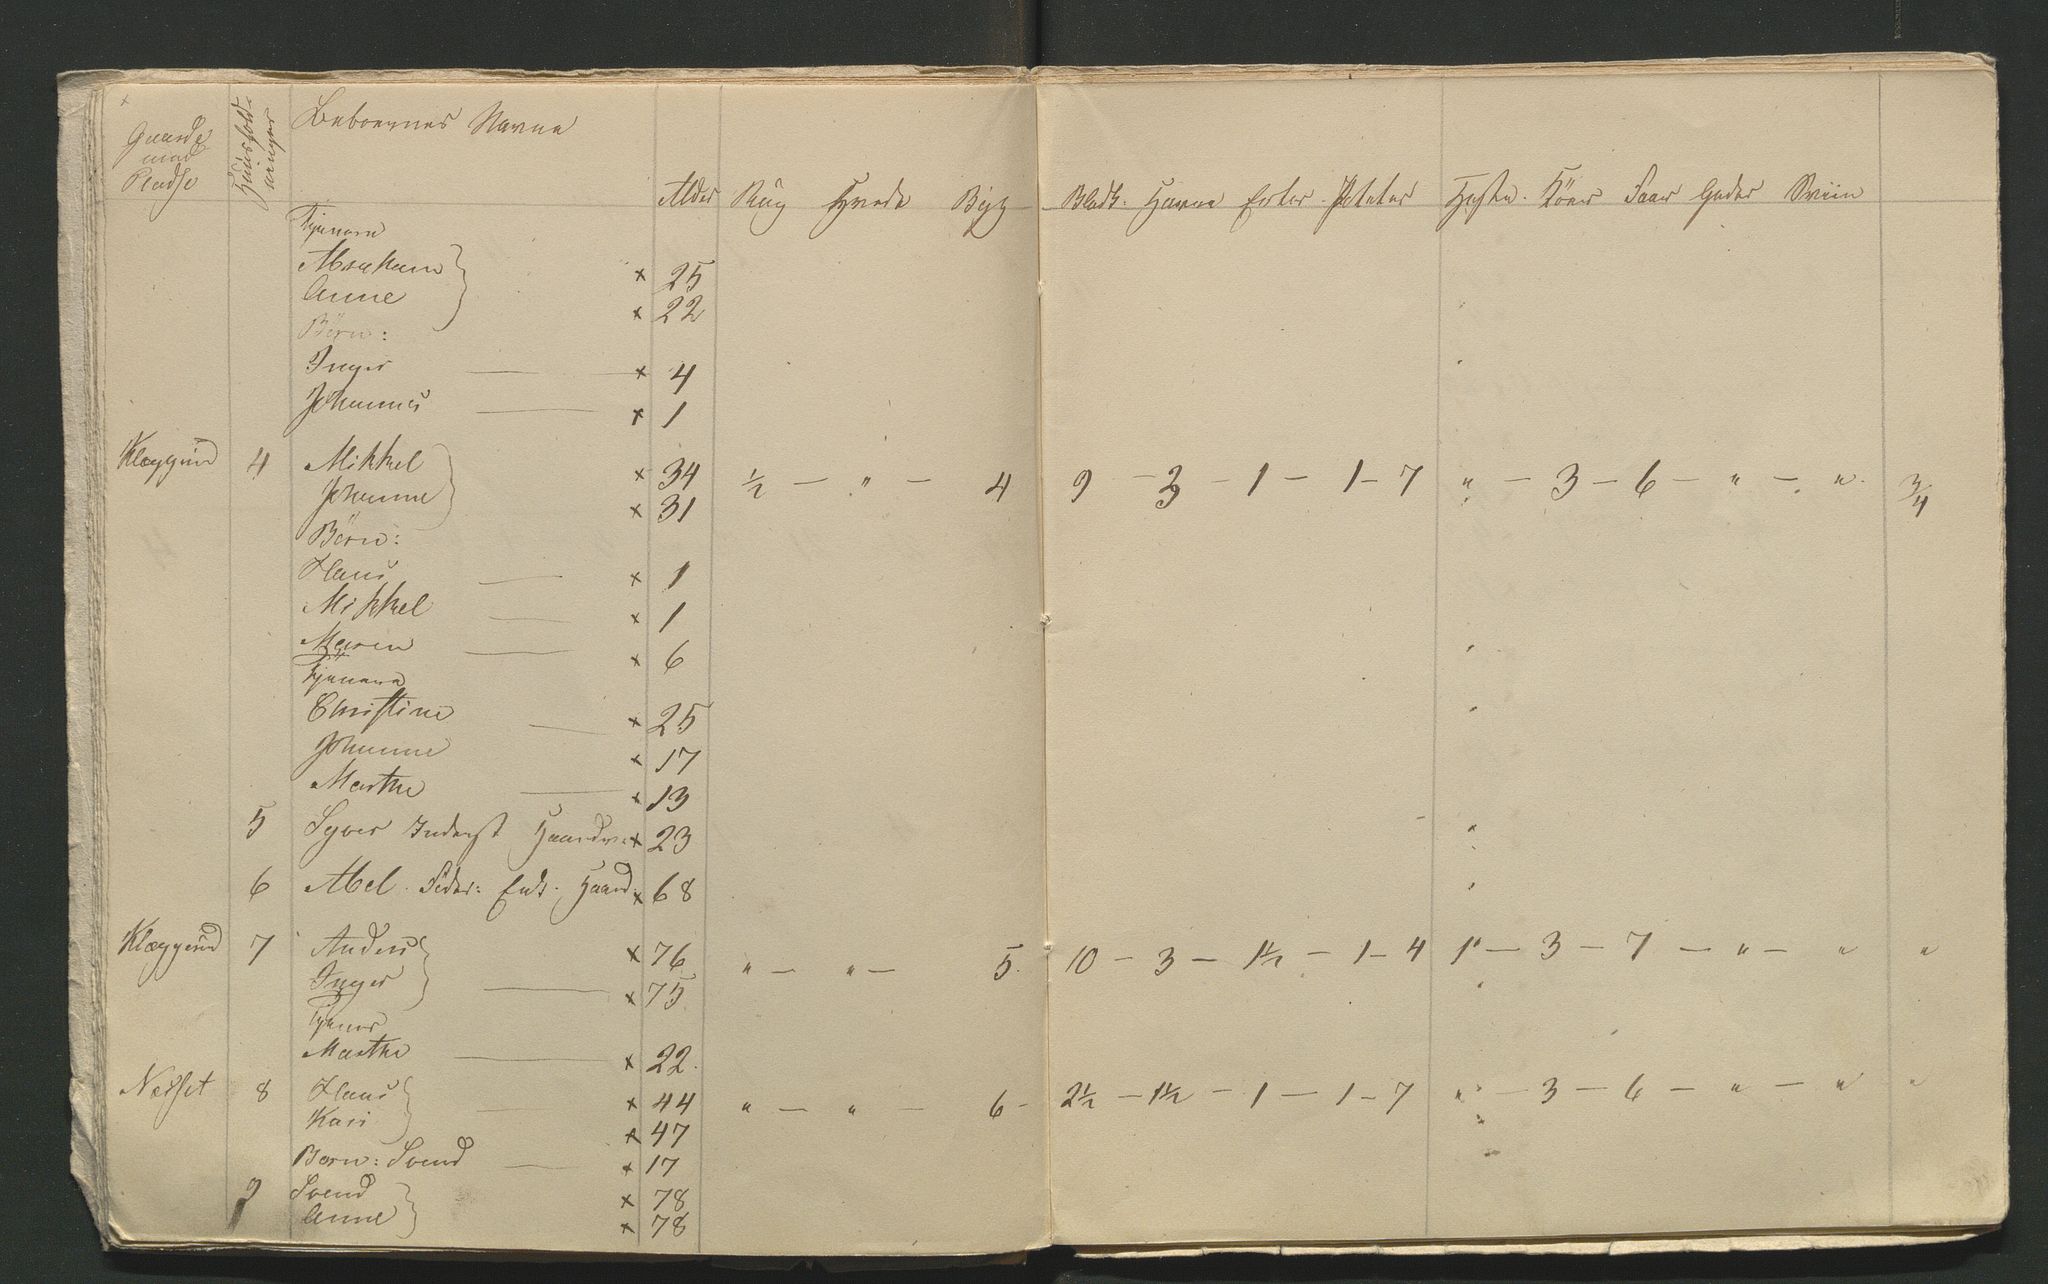 Gaarde med Pladse Huusholdninger Beboernes Navne Alder Rug Hvede Byg Bladk. Havre Erter Poteter Heste Köer Faar Geder Sviin
Tjenere
Abraham × 25
Anne × 22
Börn:
Inger — × 4
Johannes — × 1
Klæggerud 4 Mikkel × 34 ½ — " — 4 9 — 3 — 1 — 1 — 7 " — 3 — 6 — " — " 3/4
Johanne × 31
Börn:
Hans — × 1
Mikkel — × 1
Maren — × 6
Tjenere
Christine — × 25
Johanne × 17
Marthe — × 13
5 Syver Inderst Haandv: × 23
6 Abel. Föder: Enk. Haand. × 68
Klæggerud 7 Anders × 76 " — " — 5. 10 — 3 — 1½ — 1 — 4 1 — 3 — 7 — " — " "
Inger — × 75
Tjener
Marthe — × 22.
Næsset 8 Hans × 44 " — " — 6 — 2½ — 1½ — 1 — 1 — 7 " — 3 — 6 — " — " "
Kari × 47
Børn: Svend — × 17
9 Svend × 78
Anne × 78